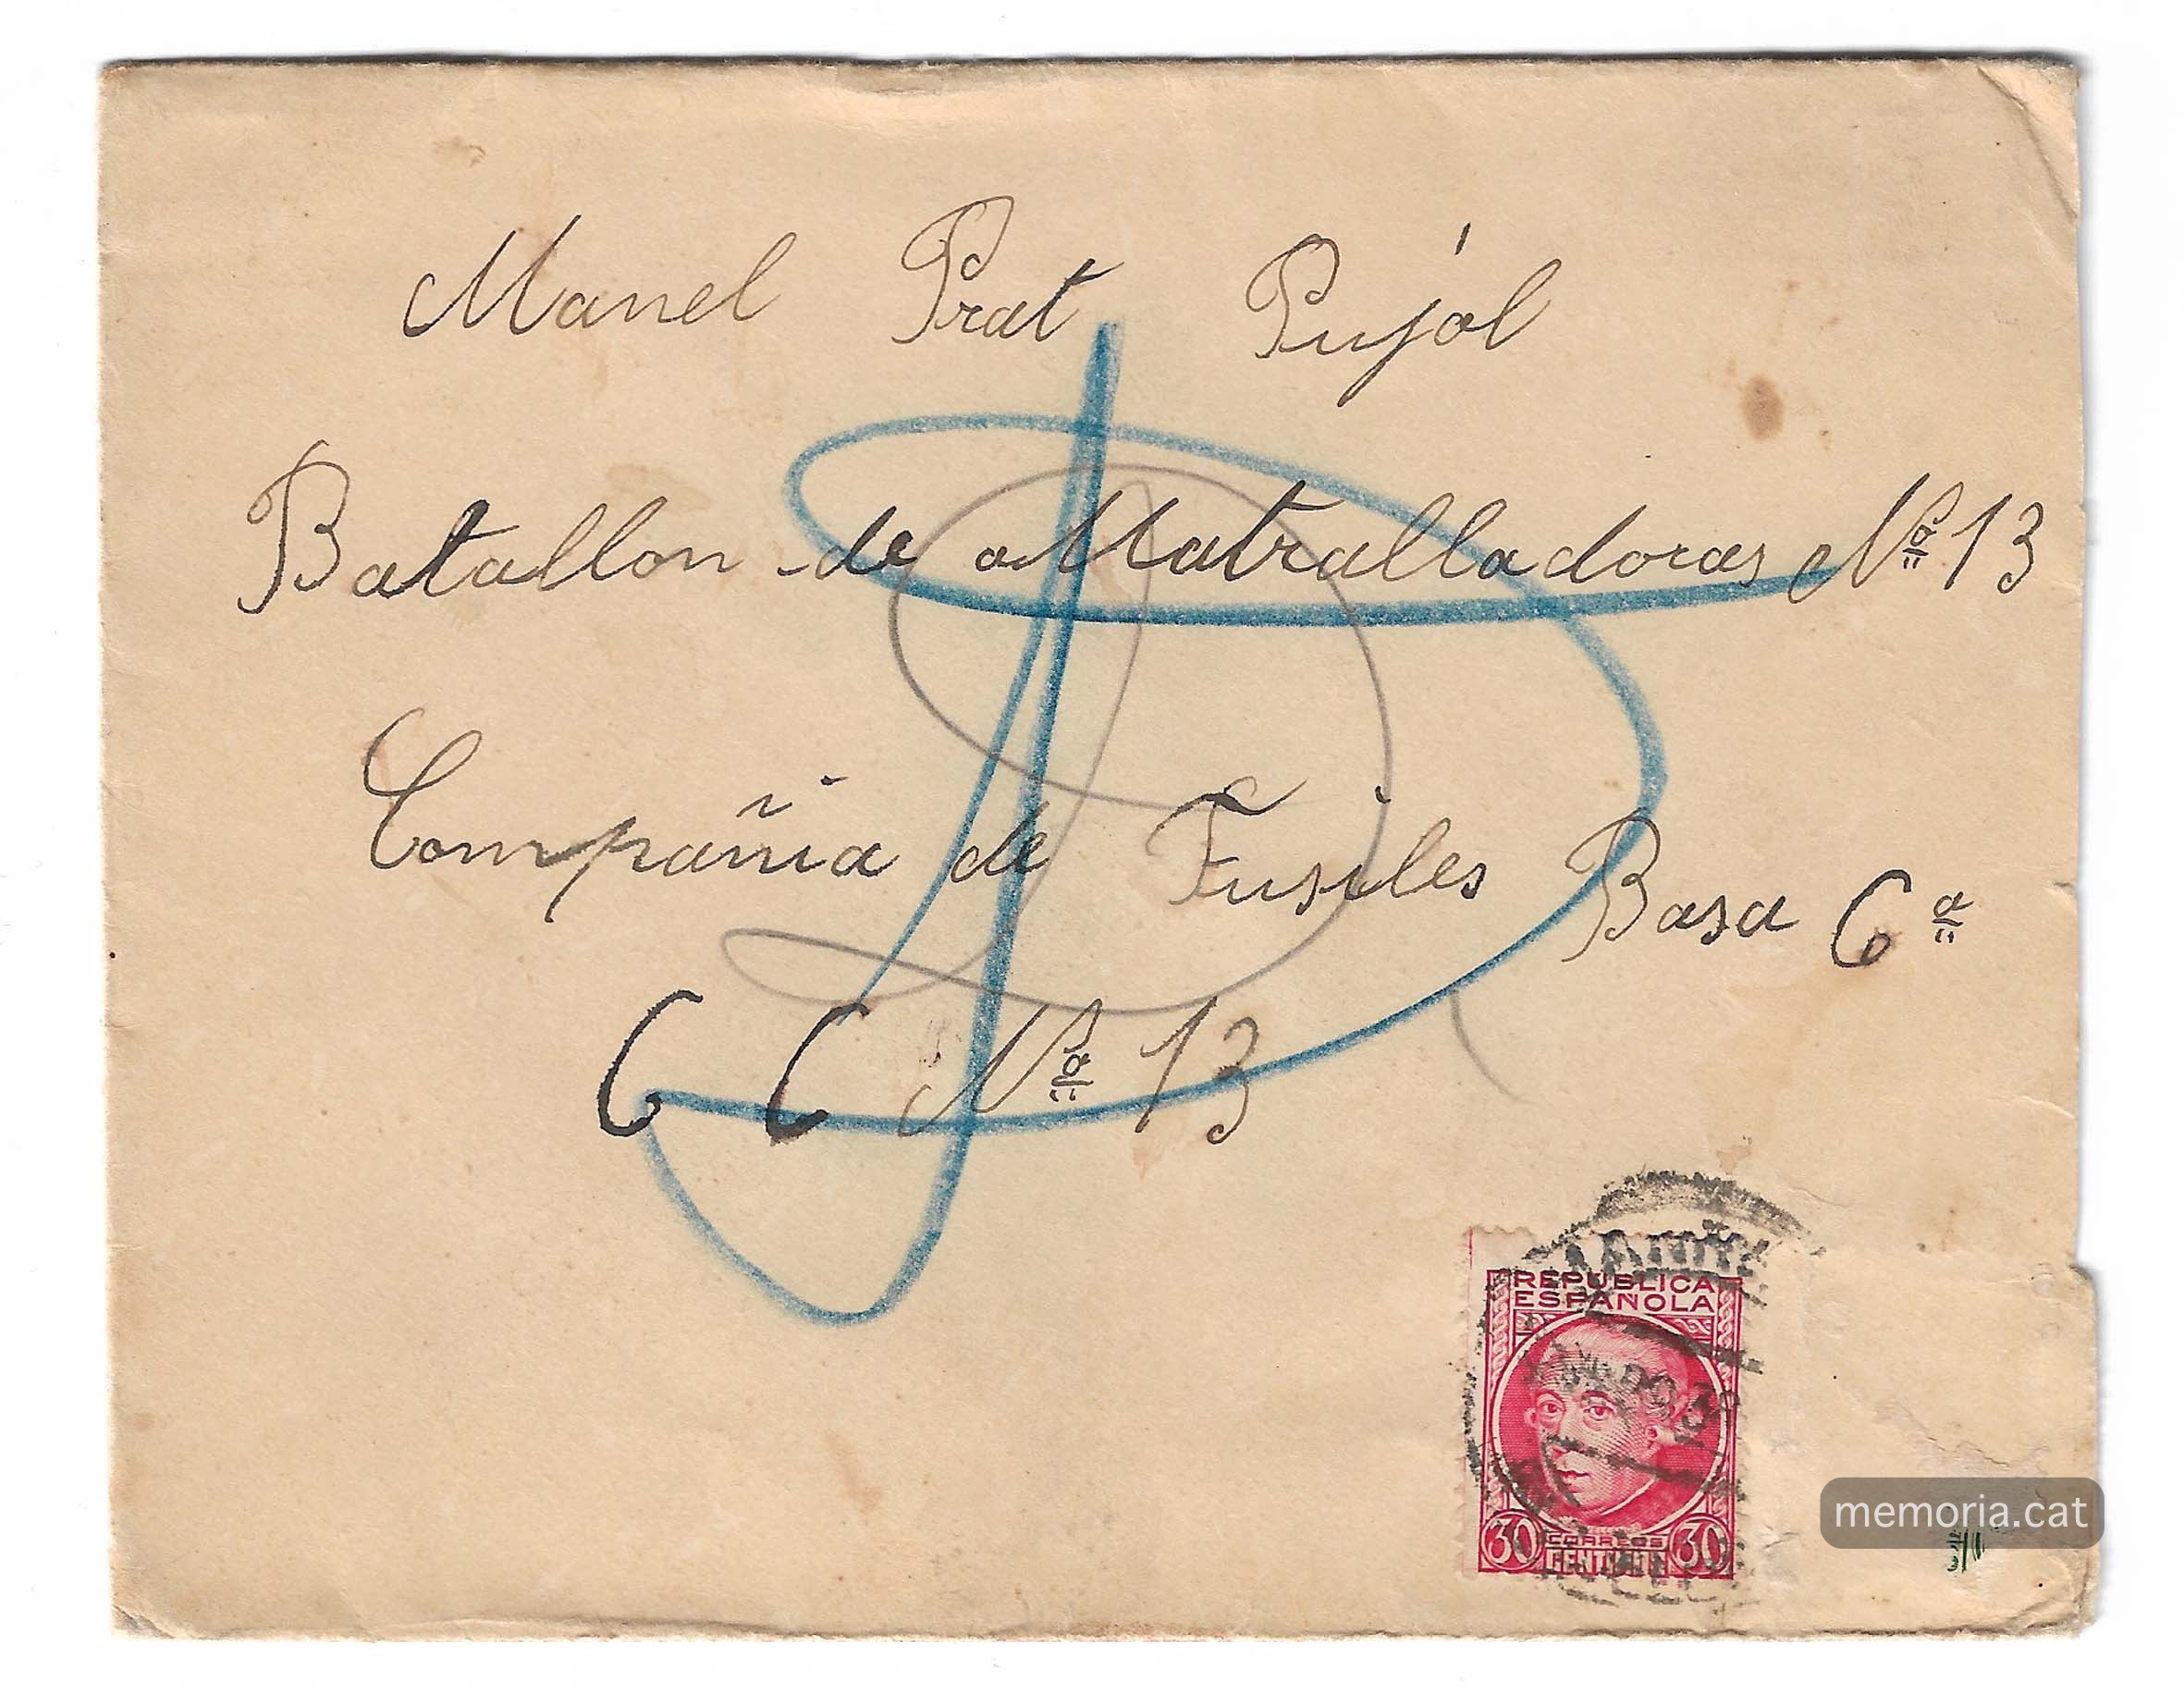 Manel Prat Pujol
Batallon de Matralladoras Nº 13
Compañia de Fusiles Basa 6ª
C C Nº 13
REPUBLICA
ESPAÑOLA
30 CORREOS 30
CENTIMOS
memoria.cat